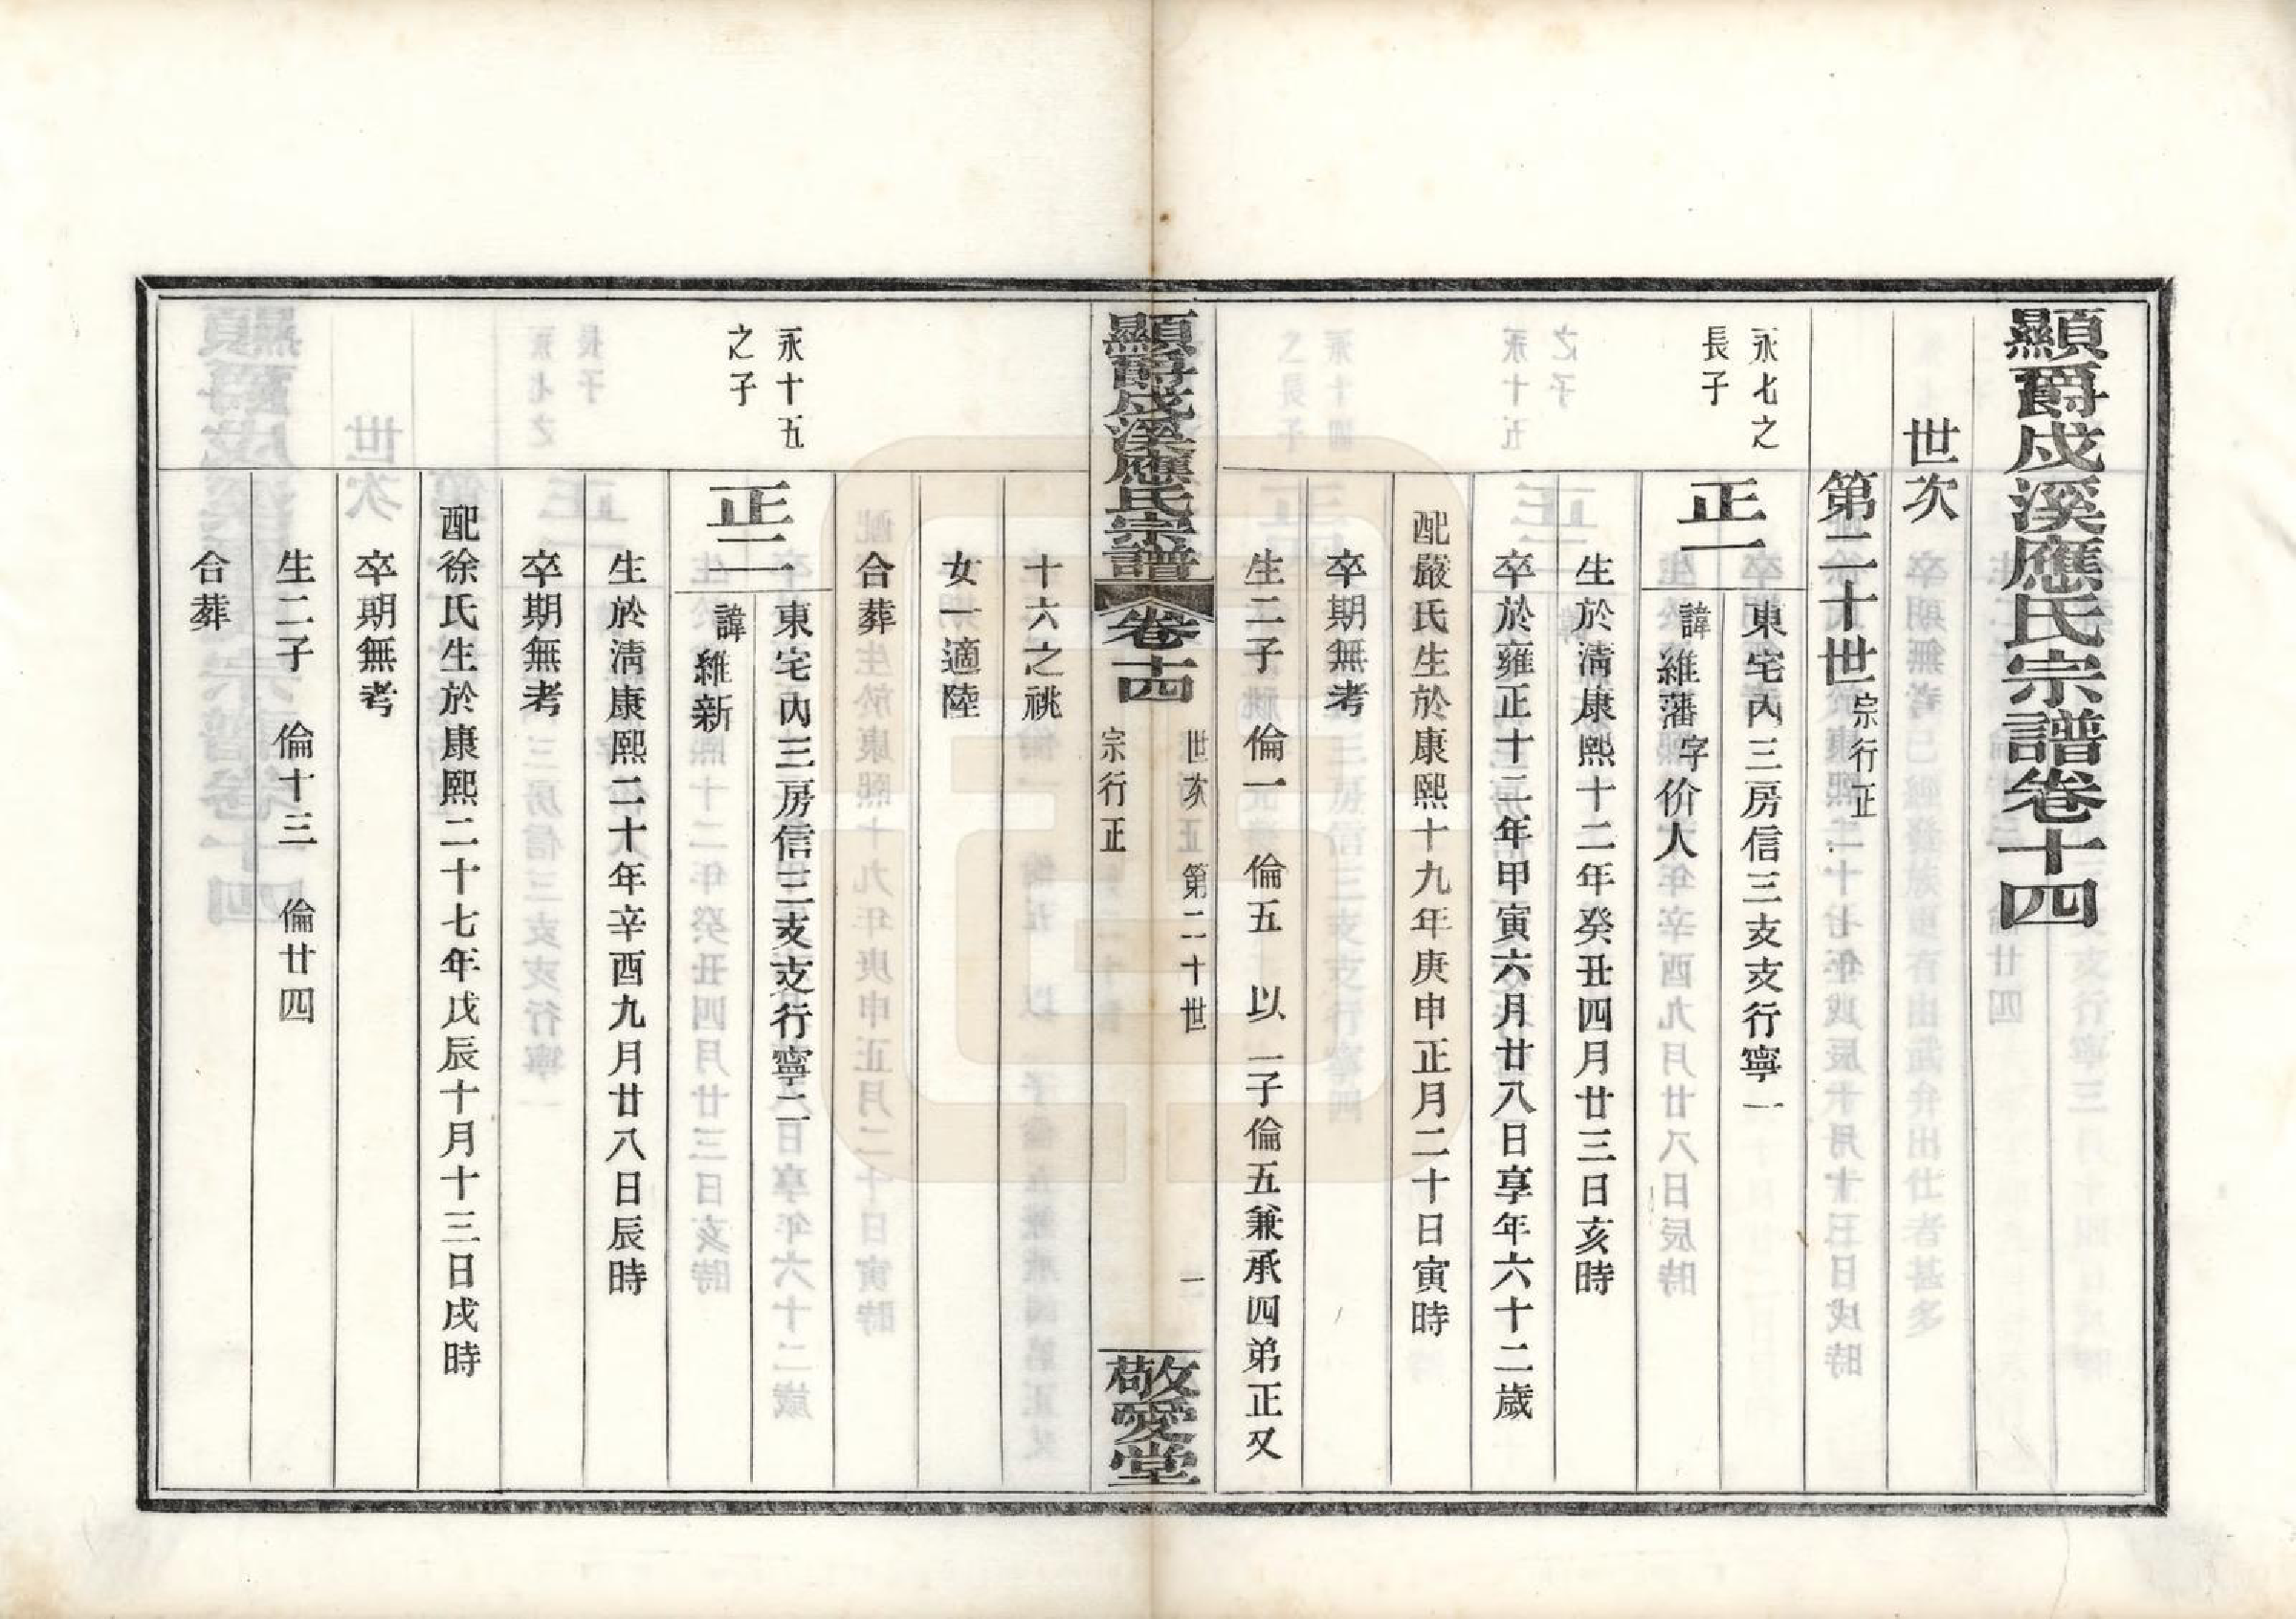 顯爵戍溪應氏宗譜卷十四
世次
第二十世宗行正
永七之
長子
正一
東宅內三房信三支支行寧一
諱維藩字价人
生於淸康熙十二年癸丑四月廿三日亥時
卒於雍正十二年甲寅六月廿八日享年六十二歲
配嚴氏生於康熙十九年庚申正月二十日寅時
卒期無考
生二子 倫一 倫五 以一子倫五兼承四弟正又
顯爵戍溪應氏宗譜
卷十四
世次 第二十世 一
宗行正
敬愛堂
十六之祧
女一適陸
合葬
永十五
之子
正二
東宅內三房信三支支行寧二
諱維新
生於淸康熙二十年辛酉九月廿八日辰時
卒期無考
配徐氏生於康熙二十七年戊辰十月十三日戌時
卒期無考
生二子 倫十三 倫廿四
合葬